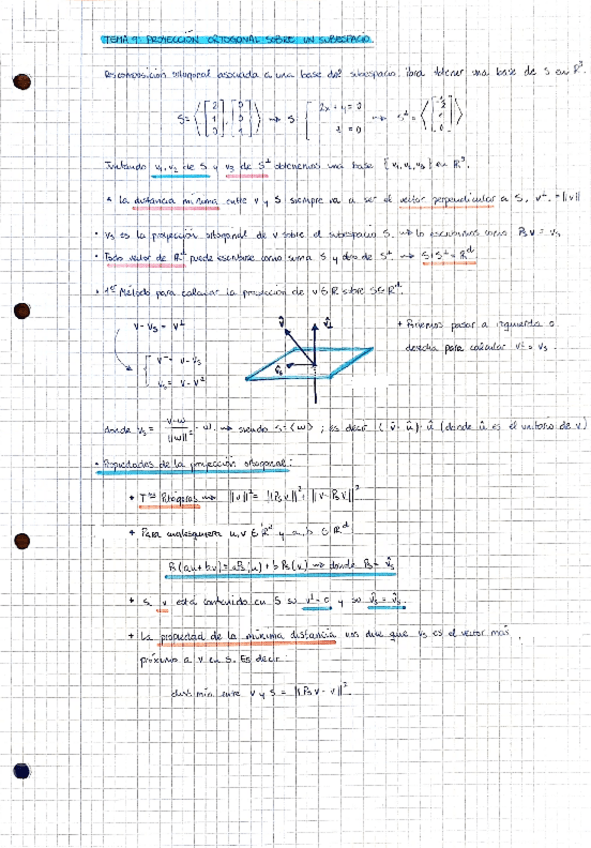 TEMA 9: PROYECCIÓN ORTOGONAL SOBRE UN SUBESPACIO
Descomposición ortogonal asociada a una base del subespacio. Para obtener una base de S en R³.
S = ⟨[2 1 0], [0 0 1]⟩ → S: → S⊥ =
Juntando v₁, v₂ de S y v₃ de S⊥ obtenemos una base {v₁, v₂, v₃} en R³.
* La distancia mínima entre v y S siempre va a ser el vector perpendicular a S, v⊥ = ||v||
• vs es la proyección ortogonal de v sobre el subespacio S. → lo escribimos como PsV = vs
• Todo vector de Rd puede escribirse como suma S y otro de S⊥ → S+S⊥ = Rd.
• 1er Método para calcular la proyección de v∈R sobre S∈Rd.
v - vs = v⊥
v⊥ = v - vs
vs = v - v⊥
v
v⊥
vs
+ Podemos pasar a izquierda o
derecha para calcular v⊥ o vs.
donde vs = v·w / ||w||² · w → siendo S=⟨w⟩; es decir (v·û)·û (donde û es el unitario de v)
• Propiedades de la proyección ortogonal:
+ Tma Pitágoras → ||v||² = ||Psv||² + ||v-Psv||²
+ Para cualesquiera u,v ∈ Rd y a,b ∈ Rd
Ps(au+bv) = aPs(u) + bPs(v) → donde Ps = vs
+ Si v está contenido en S su v⊥ = 0 y su
+ La propiedad de la mínima distancia nos dice que vs es el vector más
próximo a v en S. Es decir:
dist. mín. entre v y S = ||Psv - v||².